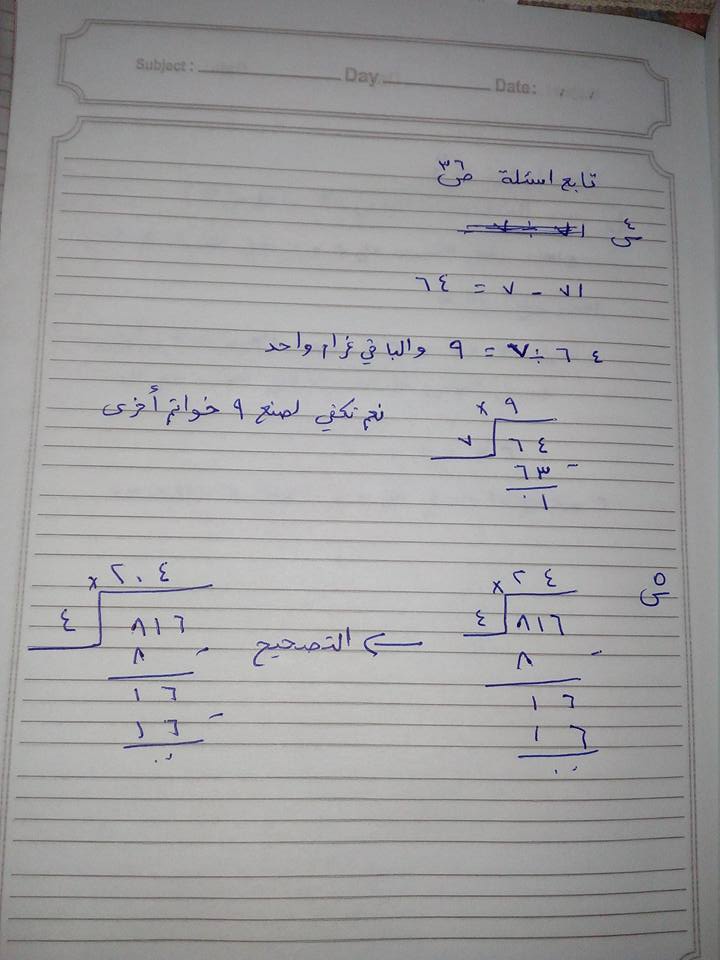 Subject : Day Date: / /
تابع اسئلة ص ٣٦
س٤
٧١ - ٧ = ٦٤
٦٤ ÷ ٧ = ٩ والباقي غرام واحد
نعم تكفي لصنع ٩ خواتم أخرى
× ٩
٧ ٦٤
٦٣ -
٠١
س٥
× ٢٤
٤ ٨١٦
٨ -
١٦
١٦
٠٠
← التصحيح
× ٢٠٤
٤ ٨١٦
٨ -
١٦
١٦ -
٠٠